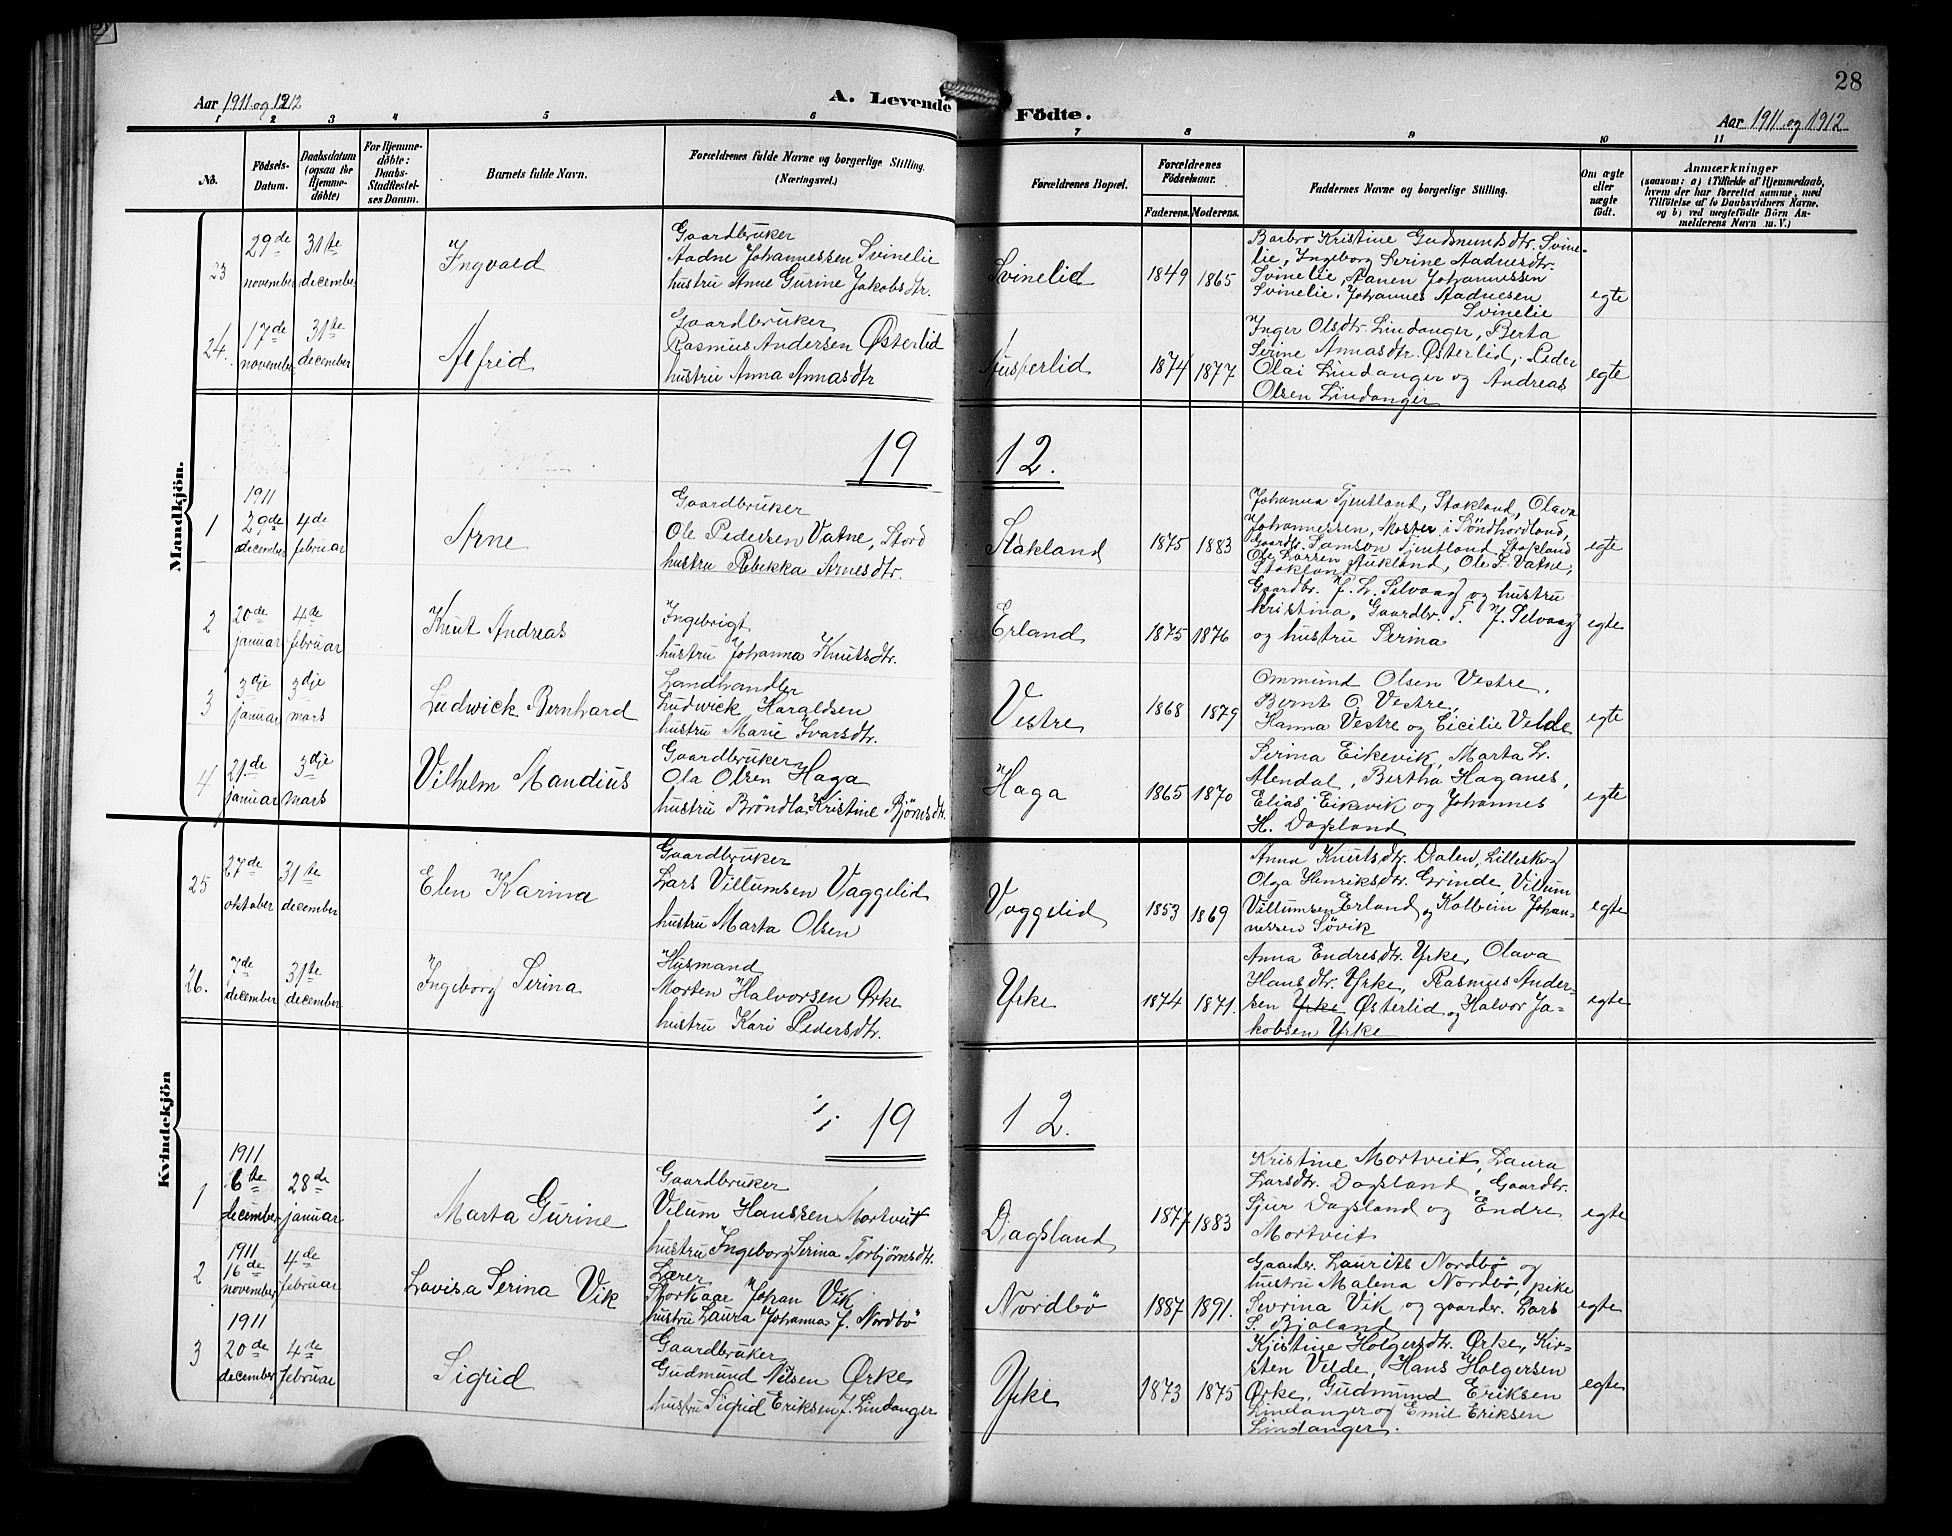 28
Aar 1911 og 1912
A. Levende Födte.
Aar 1911 og 1912
1 2 3 4 5 6 7 8 9 10 11
No.
Födsels-Datum.
Daabsdatum (ogsaa for Hjemme-döbte)
For Hjemme-döbte: Daabs-Stadfæstel-ses Datum.
Barnets fulde Navn.
Forældrenes fulde Navne og borgerlige Stilling. (Næringsvei.)
Forældrenes Bopæl.
Forældrenes Födselsaar.
Faderens. Moderens.
Faddernes Navne og borgerlige Stilling.
Om ægte eller uægte födt.
Anmærkninger
(saasom: a) i Tilfælde af Hjemmedaab, hvem der har forrettet samme, med Tilföielse af to Daabsvidners Navne. og b) ved uægtefödte Börn An-melderens Navn m. V.)
Mandkjön.
23
29de november
31te december
Ingvald
Gaardbruker
Aadne Johannessen Svinelie
hustru Anne Gurine Jakobsdtr.
Svinelid
1849 1865
Barbro Kristine Gudmundsdtr. Svine-
lie, Ingeborg Serine Aadnesdtr.
Svinelie, Aanen Johannessen
Svinelie, Johannes Aadnesen
Svinelie
egte
24.
17de november
31te december
Alfred
Gaardbruker
Rasmus Andersen Østerlid
hustru Anna Annasdtr
Austerlid
1874 1877
Inger Olsdtr. Lindanger, Berta
Serine Annasdtr. Østerlid, Peder
Olai Lindanger og Andreas
Olsen Lindanger
egte
19 12.
1
1911
29de december
4de februar
Arne
Gaardbruker
Ole Pedersen Vatne, Stord
hustru Rebekka Arnesdtr.
Stakland
1875 1883
Johanna Tjentland, Stakland, Olava
Johannessen, Moster i Søndhordland,
Gaardbr. Samson Tjentland, Stakland
Ole Larsen Aukland, Ole P. Vatne,
Stakland
egte
2
20de januar
4de februar
Knut Andreas
Ingebrigt
hustru Johanna Knutsdtr.
Erland
1875 1876
Gaardbr. J. L. Selvaag og hustru
Kristina, Gaardbr. T. J. Selvaag
og hustru Serina
egte
3
3dje januar
3dje mars
Ludwick Bernhard
Landhandler
Ludwick Haraldsen
hustru Marie Ivarsdtr.
Vestre
1868 1879
Ommund Olsen Vestre,
Bernt O. Vestre,
Hanna Vestre og Cicilie Velde
egte
4
21de januar
3dje mars
Vilhelm Mandius
Gaardbruker
Ola Olsen Haga
hustru Brøndla Kristine Bjørnsdtr.
Haga
1865 1870
Serina Eikevik, Marta L.
Alendal, Bertha Haganes,
Elias Eikevik og Johannes
H. Dagsland
egte
Kvindekjön
25
27de oktober
31te december
Elen Karina
Gaardbruker
Lars Villumsen Vaggelid
hustru Marta Olsen
Vaggelid
1853 1869
Anna Knutsdtr. Dalen, Lilleskog
Olga Henriksdtr. Grinde, Vilum
Villumsen Erland og Kolbein Johan-
nessen Søvik
egte
26.
7de december
31te december
Ingeborg Serina
Husmand
Morten Halvorsen Ørke
hustru Kari Pedersdtr.
Yrke
1874 1871.
Anna Endresdtr. Yrke, Olava
Hansdtr. Yrke, Rasmus Ander-
sen Yrke Østerlid og Halvor Ja-
kobsen Yrke
egte
19 12.
1
1911
6te december
28de januar
Marta Gurine
Gaardbruker
Vilum Hanssen Mortveit
hustru Ingeborg Serina Torbjørnsdtr.
Dagsland
1877 1883
Kristine Mortveit, Laura
Larsdtr. Dagsland, Gaardbr.
Sjur Dagsland og Endre
Mortveit
egte
2
1911
16de november
4de februar
Lavisa Serina Vik
Lærer
Storkaae Johan Vik
hustru Laura Johannas f. Nordbö
Nordbö
1887 1891.
Gaarder. Laurits Nordbö og
hustru Malena Nordbö, pike
Sevrina Vik og gaarder. Lars
S. Bjoland
egte
3
1911
20de december
4de februar
Sigrid
Gaardbruker
Gudmund Nilsen Ørke
hustru Sigrid Eriksen f. Lindanger
Yrke
1873 1875
Kjistine Holgersdtr. Ørke, Kir-
sten Velde, Hans Holgersen
Ørke, Gudmund Eriksen
Lindanger og Emil Eriksen
Lindanger.
egte